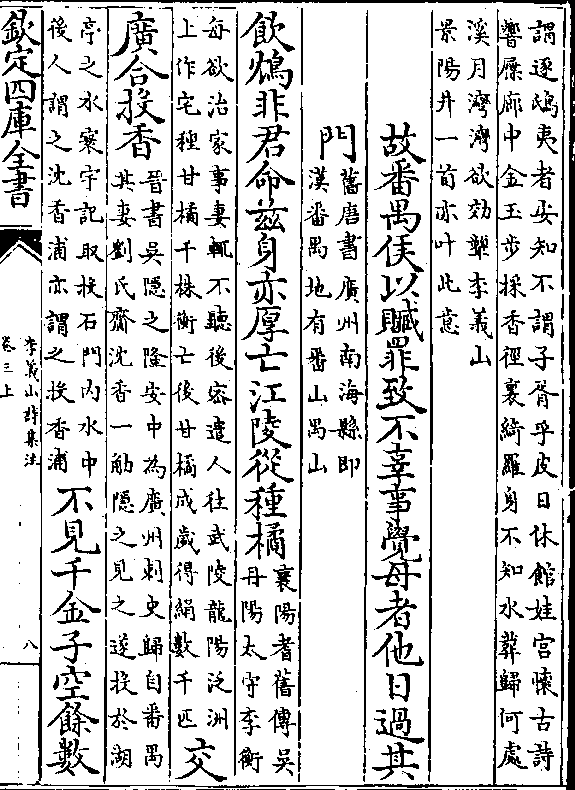 謂逐鴟夷者安知不謂子胥乎皮日休館娃宮懷古詩
響屧廊中金玉步採香徑裏綺羅身不知水葬歸何處
溪月灣灣欲効顰李義山
景陽井一首亦叶此意
故番禺侯以贓罪致不辜事覺母者他日過其
門
舊唐書廣州南海縣即
漢番禺地有番山禺山
飲鴆非君命茲身亦厚亡江陵從種橘
襄陽耆舊傳吳
丹陽太守李衡
每欲治家事妻輒不聽後密遣人往武陵龍陽泛洲
上作宅種甘橘千株衡亡後甘橘成歲得絹數千匹
交
廣合投香
晉書吳隱之隆安中為廣州刺史歸自番禺
其妻劉氏齎沈香一觔隱之見之遂投於湖
亭之水寰宇記取投石門內水中
後人謂之沈香浦亦謂之投香浦
不見千金子空餘數
欽定四庫全書
李義山詩集注
卷三上
八